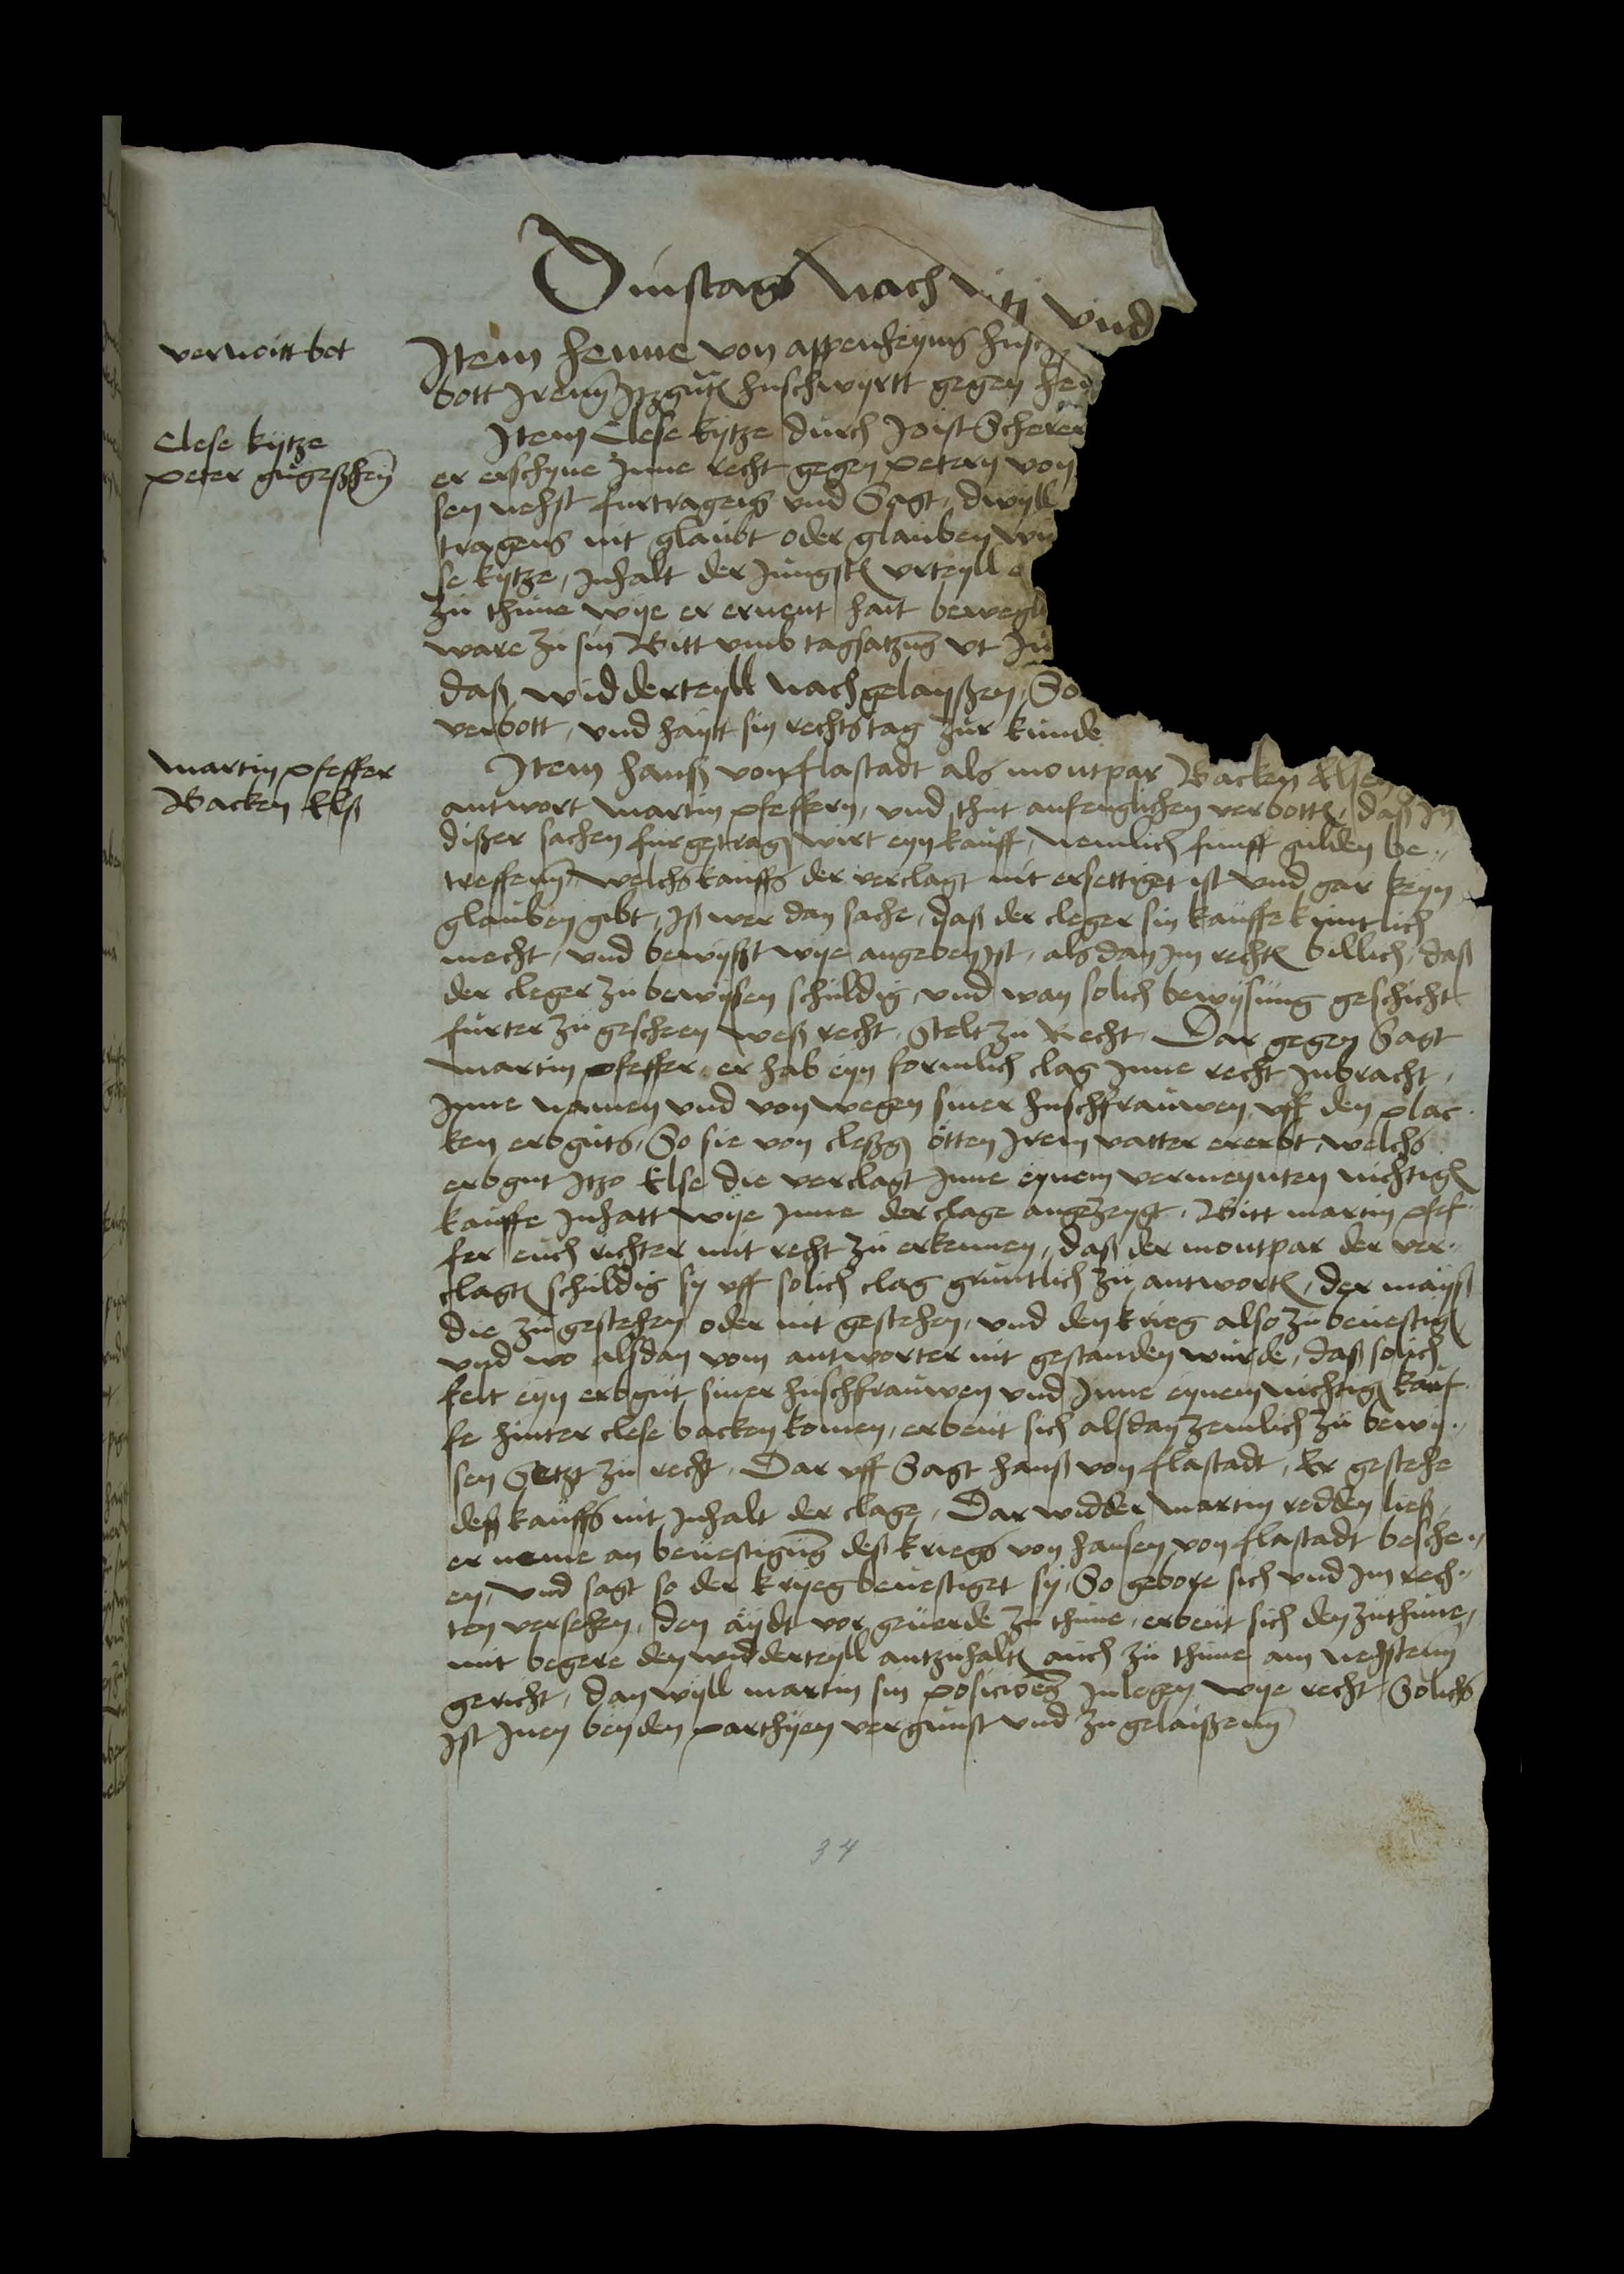 Dinstags Nach vitj vnd
vernoitt bot
Item Henne von appenheyms husch
bott Irem Itzgutē huschwyrtt gegen Hen
Clese kytze
Peter gugeßheȳ
Item Clese kytze durch Joist Scherer
er erschyne Inne recht gegen Petern von
sen nehst furtragens vnd Sagt, dwyll
tragens nit glaubt oder glauben
se kytze, Inhalt der Jungstē vrteyll
zu thune wye er ernent hait beweg
ware zu sin Bitt vmb tagsatzūg vt
daß widderteyll nachgelayßen, So
verbott, vnd haytt sin rechtstag zur kunde
Martin Pfeffer
Backen Elß
Item Hanß von flastadt als montpar Backen Elsen
antwort Martin Pfeffern, vnd thut anfenglichen verbottē, daß In
dißer sachen furgetragē wirt eyn kauff, nemlich funff gulden be„
treffenn, welchs kauffs der verclagt nit ersettiget ist vnd gar keyn
glauben gibt, Iß wer dan sache, daß der cleger sin kauffe kuntlich
mecht, vnd bewyßt wye angeben Ist, als dan Im rechtē billich, daß
der cleger zu bewysen schuldig, vnd wan solich bewysung geschicht
furter zu gescheen weß recht, Stelt zu Recht. Dar gegen Sagt
Martin Pfeffer, er hab eyn formlich clag Inne recht Inbracht,
Inne namen vnd von wegen siner huschfrauwen vff den plac„
ken erbguts, So sie von cleßgē otten Irem vatter ererbt, welchs
erbgut Itzo Else die verclagt Inne eynem vermeynten nichtigē
kauffe Inhatt wye Inne der clage angezeygt, Bitt martin Pfef„
fer euch richter mit recht zu erkennen, daß der montpar der ver„
clagtē schuldig sy vff solich clag gruntlich zu antwortē, der mayß
die zu gestehen oder nit gestehen, vnd den krieg also zu beuestigē
vnd wo alsdan vom antworter nit gestanden wurde, daß solich
felt eyn erbgut siner huschfrauwen vnd Inne eynem nichtigē kauf„
fe hinter clese backen komen, erbeut sich alsdan zemlich zu bewy„
sen Setzt zu recht. Dar vff Sagt Hanß von flastadt, Er gestehe
deß kauffs nit Inhalt der clage, Dar widder Martin redden ließ,
er neme an beuestigūg deß kriegs von Hansen von flastadt besche„
en, vnd sagt so der kryeg beuestiget sy, So gebore sich vnd Im rech„
ten versehen, den aydt vor geuerde zu thune, erbeut sich den zuthune,
mit begere den widderteyll antzuhaltē auch zu thune am nechstenn
gericht, dan wyll martin sin posicioēs Inlegen wye recht, Solichs
Ist Inen beyden parthyen vergunst vnd zu gelaißenn
34